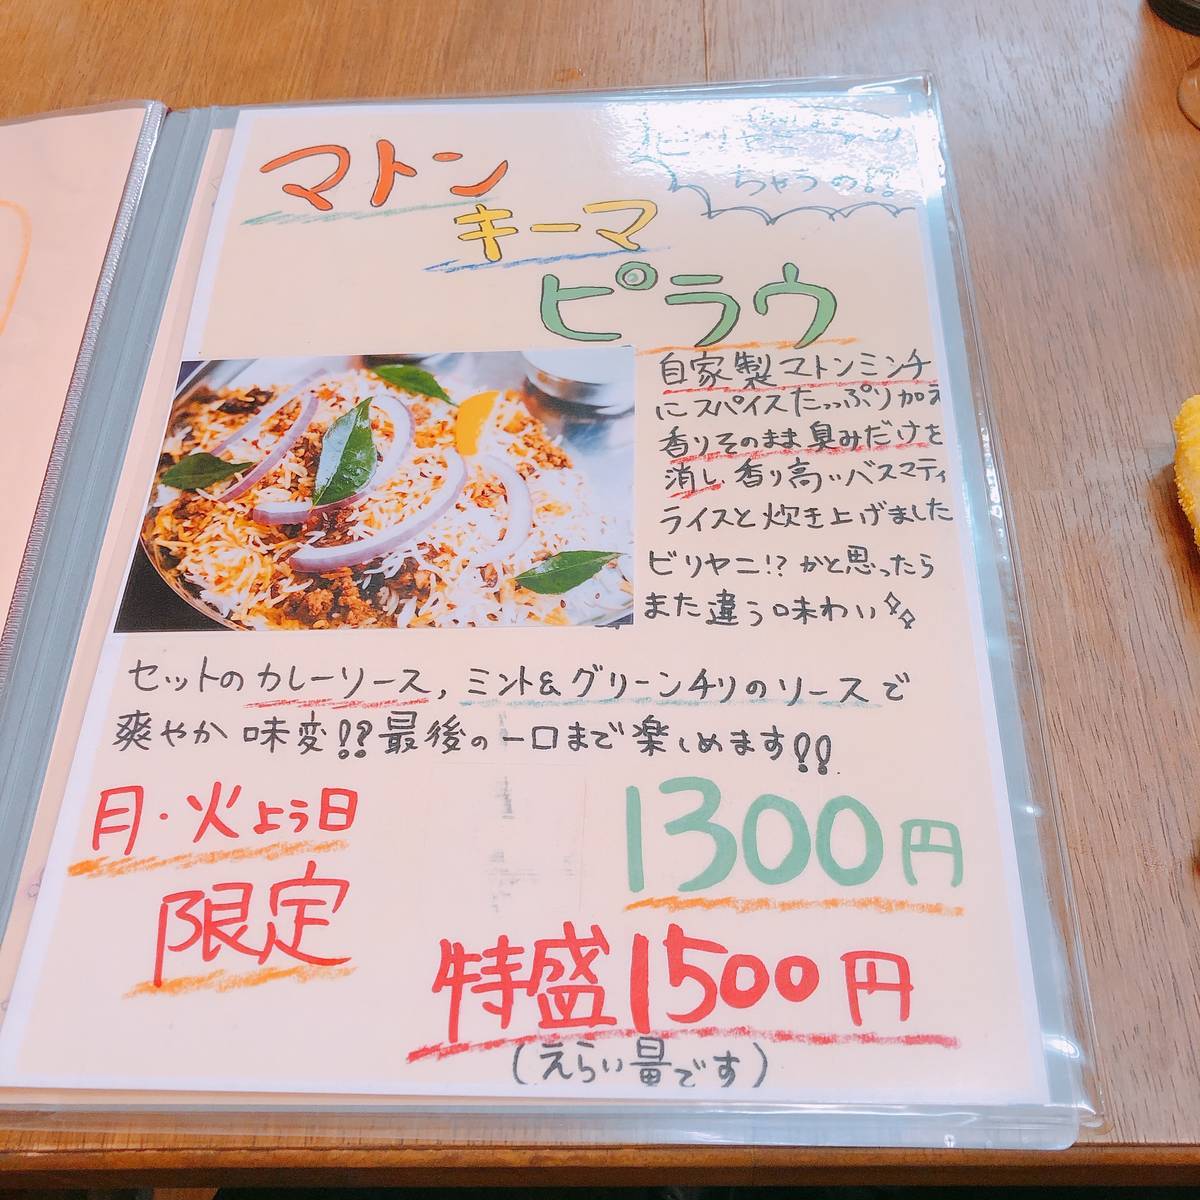 マトン
キーマ
ピラウ
ちゃうの!?
自家製マトンミンチ
にスパイスたっぷり加え
香りそのまま臭みだけを
消し香り高いバスマティ
ライスと炊き上げました
ビリヤニ!?かと思ったら
また違う味わい
セットのカレーソース,ミント&グリーンチリのソースで
爽やか味変!?最後の一口まで楽しめます!!
月・火よう日
限定
1300円
特盛1500円
(えらい量です)